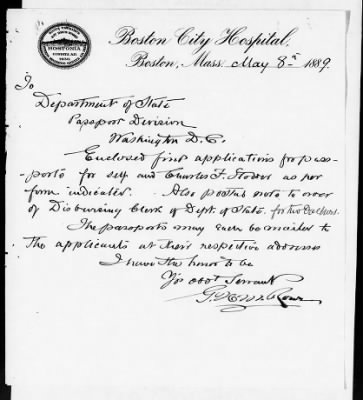 BOSTONIA
CONDITA A.D.
1630
Boston City Hospital,
Boston, Mass. May 8th 1889.
To
Department of State
Passport Division
Washington D.C.
Enclosed find applications for pass-
ports for self and Charles F. as per
form indicated. Also postal note to order
of Disbursing Clerk of Dept. of State. for two dollars.
The passports may each be mailed to
the applicants at their respective address
I have the honor to be
Yr obdt Servant
Rowe